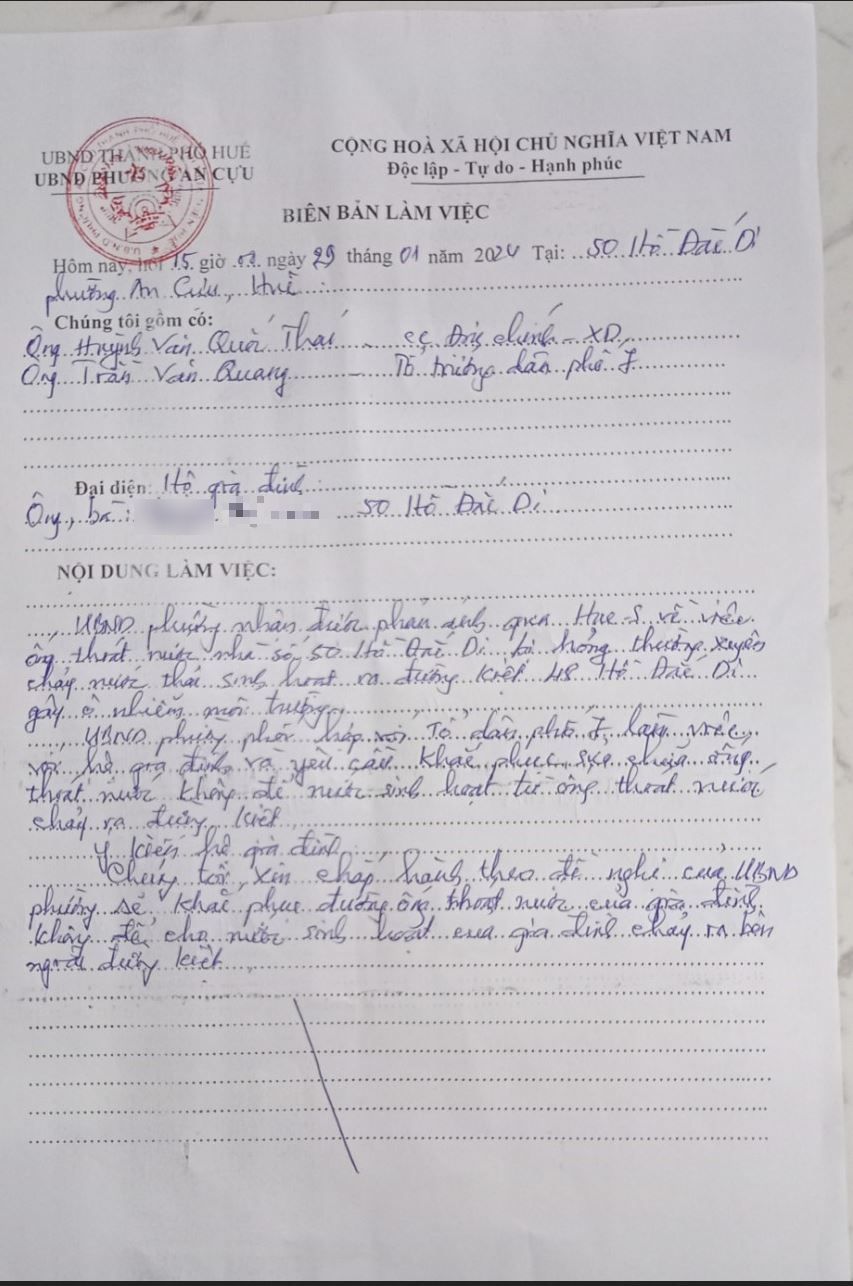 UBND THÀNH PHỐ HUẾ
UBND PHƯỜNG AN CỰU
CỘNG HOÀ XÃ HỘI CHỦ NGHĨA VIỆT NAM
Độc lập - Tự do - Hạnh phúc
BIÊN BẢN LÀM VIỆC
Hôm nay, hồi 15 giờ ngày 29 tháng 01 năm 2024 Tại: 50 Hồ Đắc Di
phường An Cựu, Huế
Chúng tôi gồm có:
Ông Huỳnh Văn Quốc Thái - cc Địa chính - XD
Ông Trần Văn Quang - Tổ trưởng dân phố 7
Đại diện: Hộ gia đình
Ông, bà: 50 Hồ Đắc Di
NỘI DUNG LÀM VIỆC:
UBND phường nhận được phản ánh qua Hue-S về việc
ống thoát nước nhà số 50 Hồ Đắc Di bị hỏng thường xuyên
chảy nước thải sinh hoạt ra đường kiệt 48 Hồ Đắc Di
gây ô nhiễm môi trường
UBND phường phối hợp với Tổ dân phố 7 làm việc
với hộ gia đình và yêu cầu khắc phục sửa chữa ống
thoát nước không để nước sinh hoạt từ ống thoát nước
chảy ra đường kiệt
Ý kiến hộ gia đình
Chúng tôi xin chấp hành theo đề nghị của UBND
phường sẽ khắc phục đường ống thoát nước của gia đình
không để cho nước sinh hoạt của gia đình chảy ra bên
ngoài đường kiệt